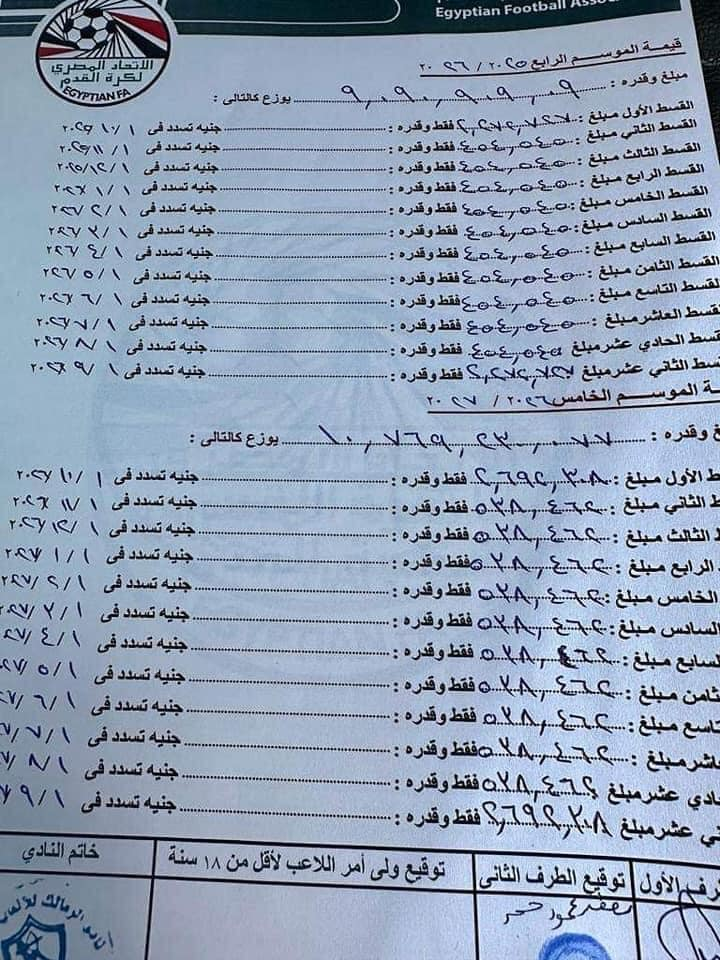 Egyptian Football Assoc
الاتحاد المصري
لكرة القدم
EGYPTIAN FA
قيمة الموسم الرابع ٢٠٢٥ / ٢٠٢٦
مبلغ وقدره : ٩,٠٩٠,٩٠٩,٠٩ يوزع كالتالى :
القسط الأول مبلغ : ٢,٢٧٢,٧٢٧ فقط وقدره : جنيه تسدد فى
القسط الثاني مبلغ : ٤٥٤,٥٤٥ فقط وقدره : جنيه تسدد فى
القسط الثالث مبلغ : ٤٥٤,٥٤٥ فقط وقدره : جنيه تسدد فى ٢٠٢٥/١٢/١
القسط الرابع مبلغ : ٤٥٤,٥٤٥ فقط وقدره : جنيه تسدد فى ٢٠٢٦/١/١
القسط الخامس مبلغ : ٤٥٤,٥٤٥ فقط وقدره : جنيه تسدد فى ٢٠٢٦/٢/١
القسط السادس مبلغ : ٤٥٤,٥٤٥ فقط وقدره : جنيه تسدد فى ٢٠٢٦/٣/١
القسط السابع مبلغ : ٤٥٤,٥٤٥ فقط وقدره : جنيه تسدد فى ٢٠٢٦/٤/١
القسط الثامن مبلغ : ٤٥٤,٥٤٥ فقط وقدره : جنيه تسدد فى ٢٠٢٦/٥/١
القسط التاسع مبلغ : ٤٥٤,٥٤٥ فقط وقدره : جنيه تسدد فى ٢٠٢٦/٦/١
القسط العاشر مبلغ : ٤٥٤,٥٤٥ فقط وقدره : جنيه تسدد فى ٢٠٢٦/٧/١
قسط الحادي عشر مبلغ ٤٥٤,٥٤٥ فقط وقدره : جنيه تسدد فى ٢٠٢٦/٨/١
سط الثاني عشر مبلغ ٢,٢٧٢,٧٢٧ فقط وقدره : جنيه تسدد فى ٢٠٢٦/٩/١
ة الموسم الخامس ٢٠٢٦ / ٢٠٢٧
غ وقدره : ١٠,٧٦٩,٢٣٠,٠٧٧ يوزع كالتالى :
ط الأول مبلغ : ٢,٦٩٢,٣٠٨ فقط وقدره : جنيه تسدد فى ٢٠٢٦/١٠/١
ط الثاني مبلغ : ٥٣٨,٤٦٢ فقط وقدره : جنيه تسدد فى ٢٠٢٦/١١/١
ط الثالث مبلغ : ٥٣٨,٤٦٢ فقط وقدره : جنيه تسدد فى ٢٠٢٦/١٢/١
الرابع مبلغ : ٥٣٨,٤٦٢ فقط وقدره : جنيه تسدد فى ٢٠٢٧/١/١
الخامس مبلغ : ٥٣٨,٤٦٢ فقط وقدره : جنيه تسدد فى ٢٠٢٧/٢/١
السادس مبلغ : ٥٣٨,٤٦٢ فقط وقدره : جنيه تسدد فى ٢٧/٣/١
سابع مبلغ : ٥٣٨,٤٦٢ فقط وقدره : جنيه تسدد فى ٢٧/٤/١
ثامن مبلغ : ٥٣٨,٤٦٢ فقط وقدره : جنيه تسدد فى ٢٧/٥/١
تاسع مبلغ : ٥٣٨,٤٦٢ فقط وقدره : جنيه تسدد فى ٧/٦/١
عاشر مبلغ : ٥٣٨,٤٦٢ فقط وقدره : جنيه تسدد فى ٧/٧/١
ادي عشر مبلغ ٥٣٨,٤٦٢ فقط وقدره : جنيه تسدد فى ٧/٨/١
ني عشر مبلغ ٢,٦٩٢,٣٠٨ فقط وقدره : جنيه تسدد فى ٧/٩/١
رف الأول
توقيع الطرف الثانى
توقيع ولى أمر اللاعب لأقل من ١٨ سنة
خاتم النادي
نادى الزمالك للألعاب